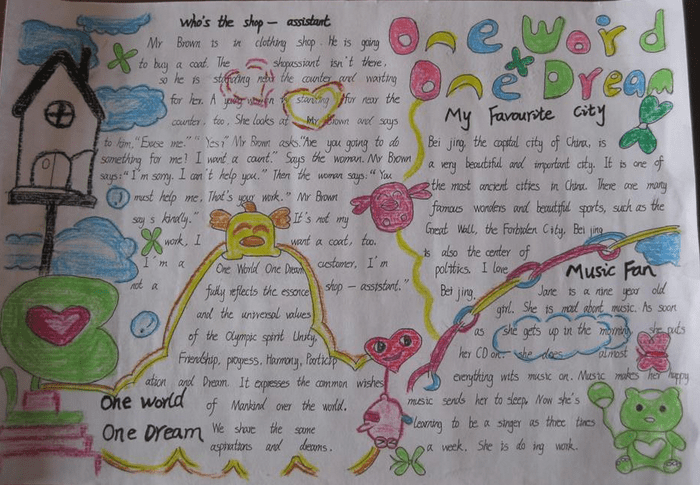 Who's the shop - assistant
Mr Brown is in clothing shop. He is going
to buy a coat. The shopassisant isn't there,
so he is near the counter and waiting
for her. A is standing far near the
counter, too. She looks at Mr Brown and says
to him, "Excuse me." "Yes?" Mr Brown asks. "Are you going to do
something for me? I want a count." Says the woman. Mr Brown
says: "I'm sorry. I can't help you." Then the woman says: "You
must help me. That's your work." Mr Brown
say s kindly." It's not my
work, I want a coat, too.
I'm a customer, I'm
not a shop - assistant."
One World One Dream
fully reflects the essence
and the universal values
of the Olympic spirit Unity,
Friendship, progress, Harmony, Particip
ation and Dream. It expresses the common wishes
of Mankind over the world.
We share the same
aspirations and dreams.
One World
One Dream
One Word
One Dream
My Favourite City
Bei jing, the capital city of China, is
a very beautiful and important city. It is one of
the most ancient cities in China. There are many
famous wonders and beautiful sports, such as the
Great Wall, the Forbiden City, Bei jing
is also the center of
politics. I love
Bei jing.
Music Fan
Jane is a nine year old
girl. She is mad abont music. As soon
as she gets up in the morning, she puts
her CD on. she does almost
everything wits music on. Music makes her happy
music sends her to sleep. Now she's
learning to be a singer as three times
a week. She is do ing work.